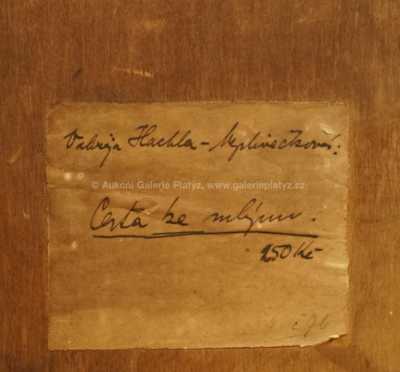 Valerija Hachla-Myslivečková:
© Aukční Galerie Platýz, www.galerieplatyz.cz
Cesta ke mlýnu.
250 Kč